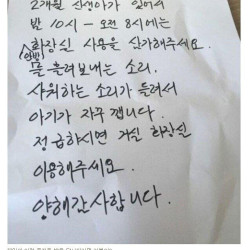 2개월 신생아가 있어서
밤 10시 - 오전 8시에는
안방
화장실 사용을 삼가해주세요.
물 흘려보내는 소리.
샤워하는 소리가 들려서
아기가 자꾸 깹니다.
정 급하시면 거실 화장실
이용해주세요.
양해 감사합니다.